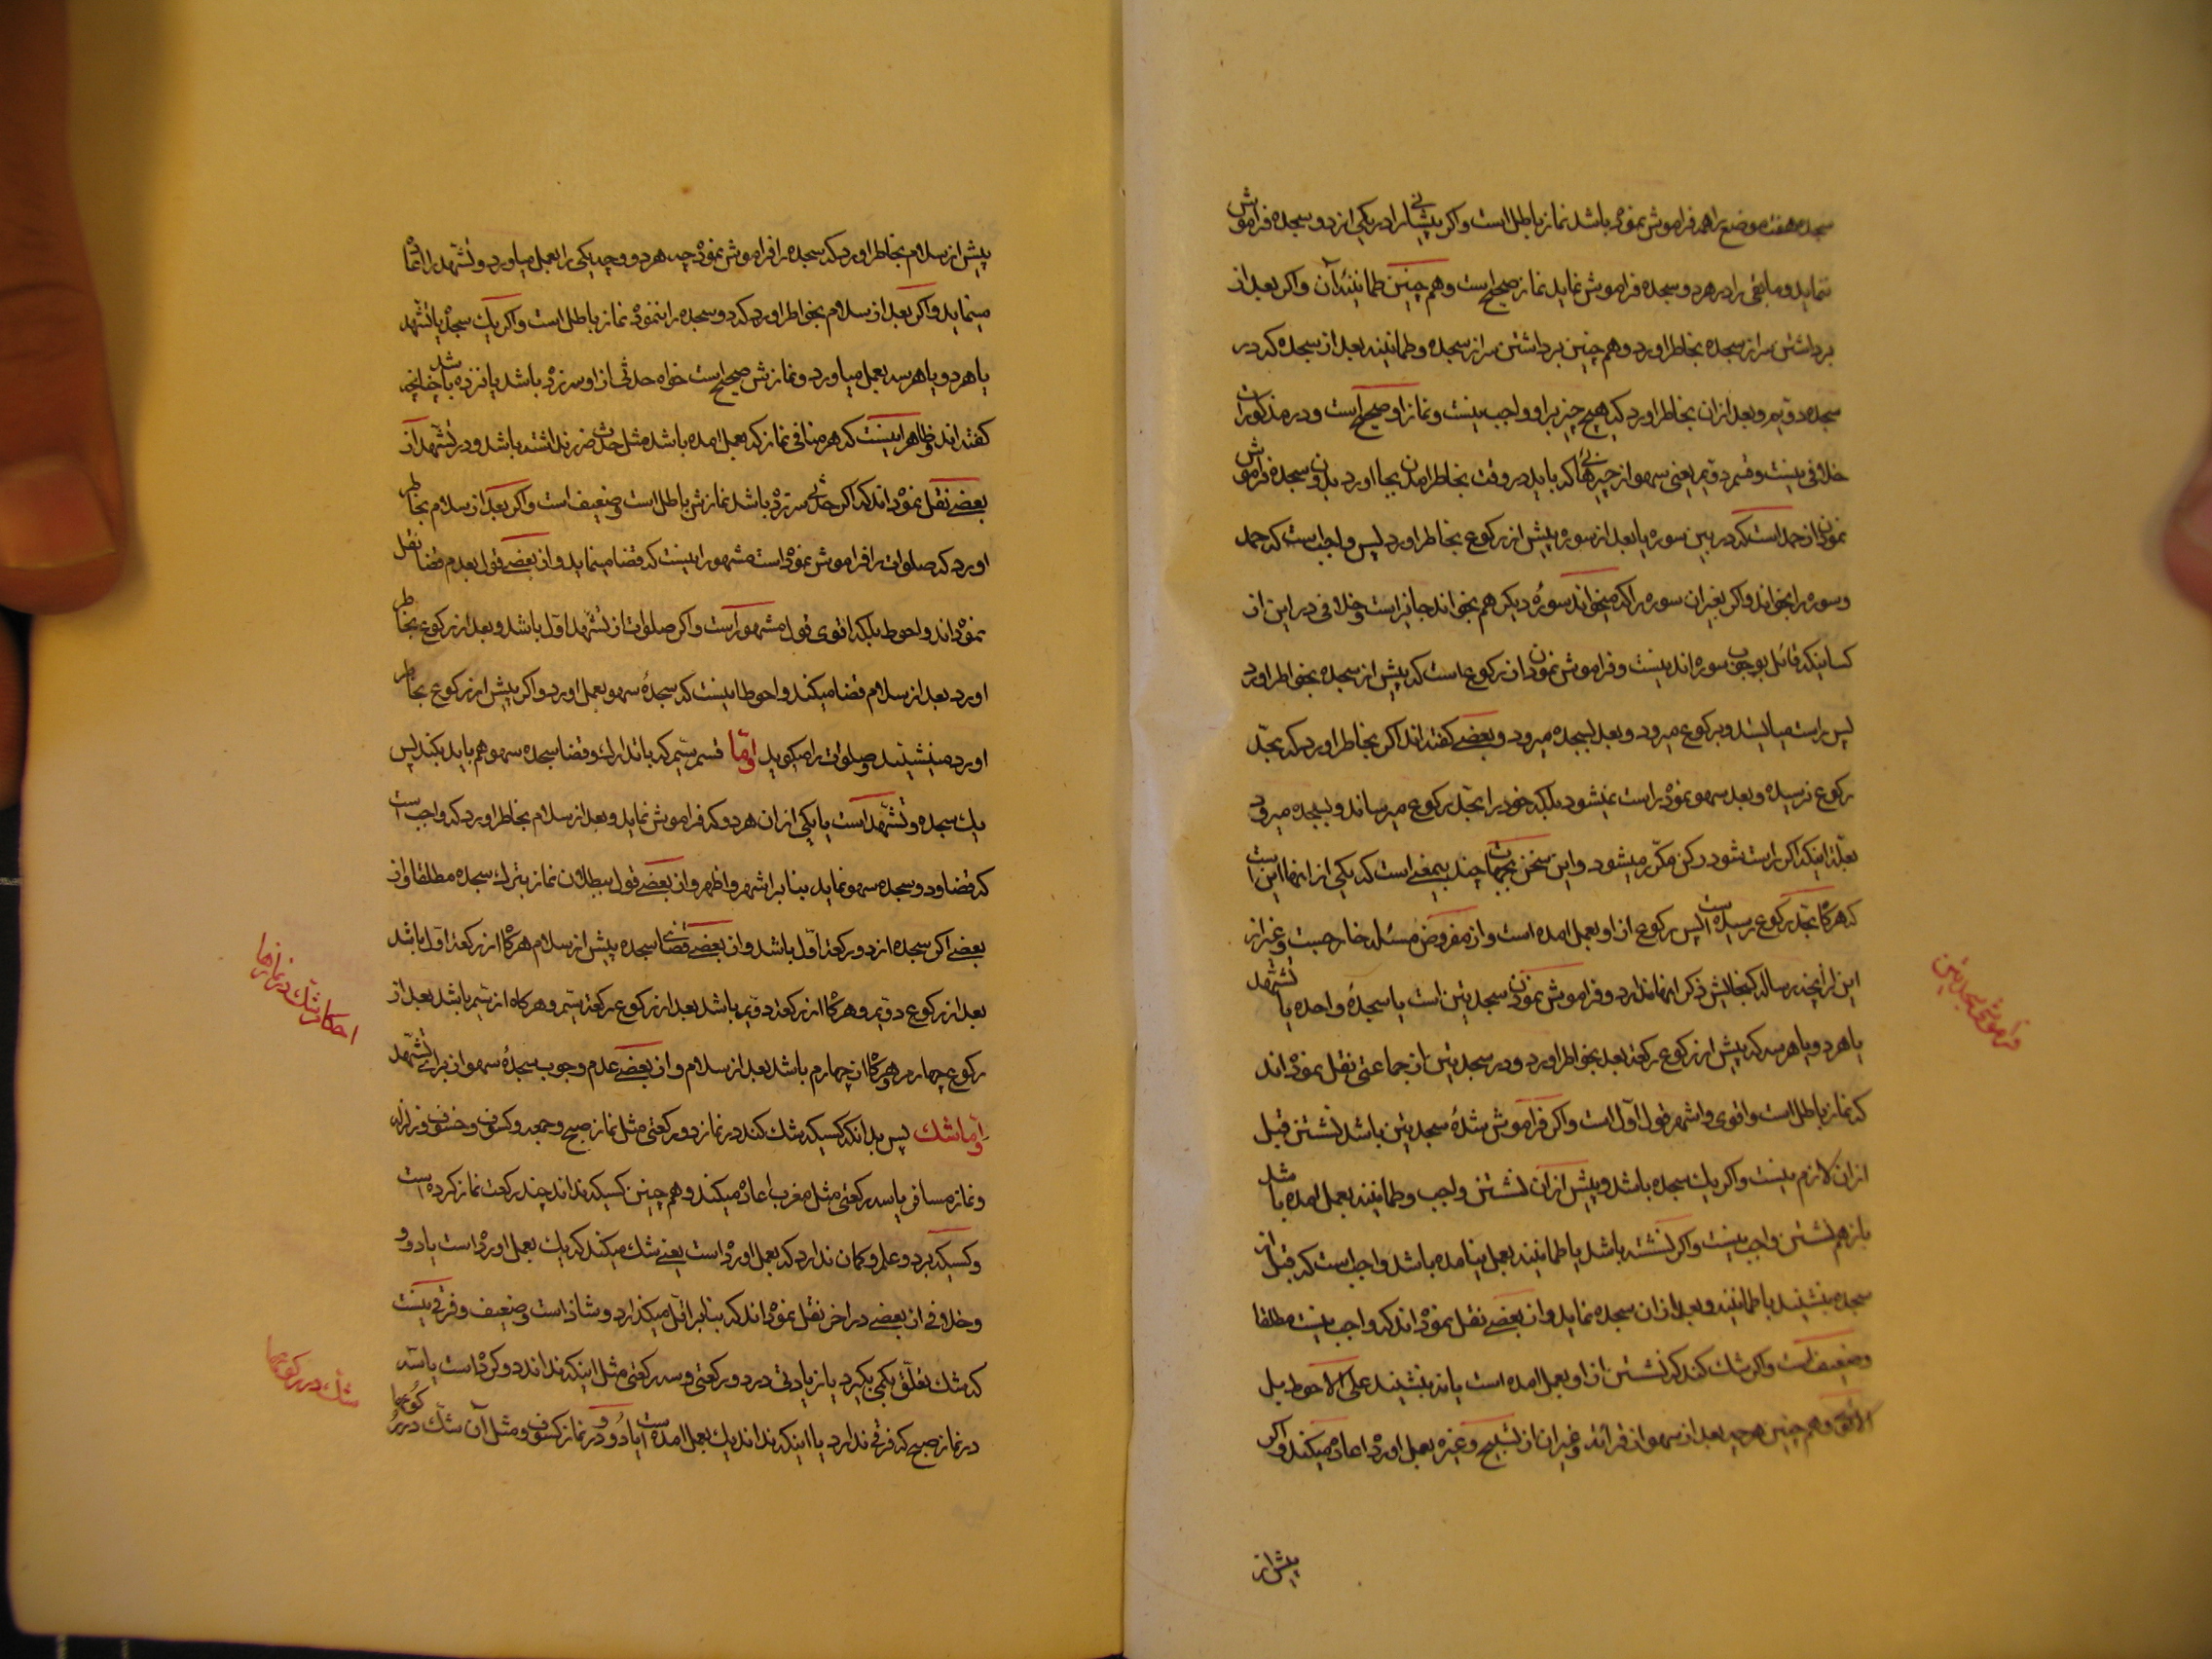 سجده هفت موضع را هم فراموش نموده باشد نماز باطل است و اکر پیشانی را در یکی از دو سجده فراموش
ننماید و مابقی را در هر دو سجده فراموش نماید نماز صحیح است و هم چنین طمانینهٔ آن و اکر بعد از
برداشتن سر از سجده بخاطر اورد و هم چنین برداشتن سر از سجده و طمانینه بعد از سجده که در
سجده دویم و بعد از ان بخاطر اورد که هیچ چیز بر او واجب نیست و نماز او صحیح است و در مذکورات
خلافی نیست و قسم دویم یعنی سهو از چیزهائی که باید در وقت بخاطر امدن بجا اورد بدون سجده فراموش
نمودن از حمد است که در بین سوره یا بعد از سوره پیش از رکوع بخاطر اورد پس واجب است که حمد
و سوره را بخواند و اکر بغیر ان سوره را که میخواند سورهٔ دیکر هم بخواند جایز است و خلافی در این از
کسانیکه قائل بوجوب سوره اند نیست و فراموش نمودن از رکوع است که پیش از سجده بخواطر اورد
پس راست میایستد و برکوع میرود و بعد بسجده میرود و بعضے کفته اند اکر بخاطر اورد که بحدّ
رکوع نرسیده و بعد سهو نموده راست نمیشود بلکه خود را بحدّ رکوع میرساند و بسجده میرود
بعلّة اینکه اکر راست شود رکن مکرّر میشود و این سخن بجهات چند بیمعنے است که یکی از انها این است
که هرکاه بحدّ رکوع رسیده است پس رکوع از او بعمل امده است و از مفروض مسئله خارجست و غیر از
این از انچه رساله کنجایش ذکر انها ندارد و فراموش نمودن سجدیتن است یا سجدهٔ واحده یا تشهّد
یا هر دو یا هر سه که پیش از رکوع رکعة بعد بخواطر اورد و در سجدیتن از جماعتی نقل نموده اند
که نماز باطل است و اقوی و اشهر قول اول است و اکر فراموش شدهٔ سجدیتن باشد نشستن قبل
از ان لازم نیست و اکر یک سجده باشد و پیش از ان نشستن واجب و طمانینه بعمل امده باشد
باز هم نشستن واجب نیست و اکر ننشسته باشد یا طمانینه بعمل نیامده باشد واجب است که قبل از
سجده بنشیند با طمانینه و بعد از ان سجده نماید و از بعضے نقل نموده اند که واجب نیست مطلقا
و ضعیف است و اکر شک کند که نشستن از او بعمل امده است یا نه بنشیند علی الاحوط بل
الاقوی و هم چنین هر چه بعد از سهو از قرائة و غیر ان از تسبیح و غیره بعمل اورده اعاده میکند و اکر
پیش از
فراموشی سجدیتن
پیش از سلام بخاطر اورد که سجده را فراموش نموده چه هر دو و چه یکی را بعمل میاورد و تشهد را اتمام
مینماید و اکر بعد از سلام بخواطر اورد که دو سجده را ننموده نماز باطل است و اکر یک سجده یا تشهد
یا هر دو یا هر سه بعمل میاورد و نمازش صحیح است خواه حدثی از او سر زده باشد یا نزده باشد چنانچه
کفته اند و ظاهر اینست که هر منافی نماز که بعمل امده باشد مثل حدث ضرر نداشته باشد و در تشهد از
بعضے نقل نموده اند که اکر حدثی سر زده باشد نمازش باطل است و ضعیف است و اکر بعد از سلام بخاطر
اورد که صلوات را فراموش نموده است مشهور اینست که قضا مینماید و از بعضے قول بعدم قضا نقل
نموده اند و احوط بلکه اقوی قول مشهور است و اکر صلوات از تشهّد اول باشد و بعد از رکوع بخاطر
اورد بعد از سلام قضا میکند و احوط اینست که سجدهٔ سهو بعمل اورد و اکر پیش از رکوع بخاطر
اورد مینشیند و صلوات را میکوید و امّا قسم سیّم که با تدارک و قضا سجده سهو هم باید بکند پس
یک سجده و تشهّد است یا یکی از ان هر دو که فراموش نماید و بعد از سلام بخاطر اورد که واجب است
که قضا و دو سجده سهو نماید بنابر اشهر و اظهر و از بعضے قول ببطلان نماز بترک سجده مطلقا و از
بعضے اکر سجده از دو رکعة اوّل باشد و از بعضے قضای سجده پیش از سلام هرکاه از رکعة اول باشد
بعد از رکوع دویم و هرکاه از رکعة دویم باشد بعد از رکوع رکعة سیّم و هرکاه از سیّم باشد بعد از
رکوع چهارم و هرکاه از چهارم باشد بعد از سلام و از بعضے عدم وجوب سجدهٔ سهو از برای تشهّد
و امّا شک پس بدانکه کسیکه شک کند در نماز دو رکعتی مثل نماز صبح و جمعه و کسوف و خسوف و زلزله
و نماز مسافر یا سه رکعتی مثل مغرب اعاده میکند و هم چنین کسیکه نداند چند رکعت نماز کرده است
و کسیکه برد و علم و کمان ندارد که بعمل اورده است یعنے شک میکند که یک بعمل اورده است یا دو و
و خلافی از بعضے در اخر نقل نموده اند که بنا بر اقل میکذارد و شاذ است و ضعیف و فرقی نیست
که شک تعلّق بکمی بکیرد یا زیادتی در دو رکعتی و سه رکعتی مثل اینکه نداند دو کرده است یا سه
در نماز صبح که فرقی ندارد یا اینکه نداند یک بعمل امده است یا دو و در نماز کسوف و مثل آن شک در رکوعها
احکام شک در نمازها
شک در رکوعها